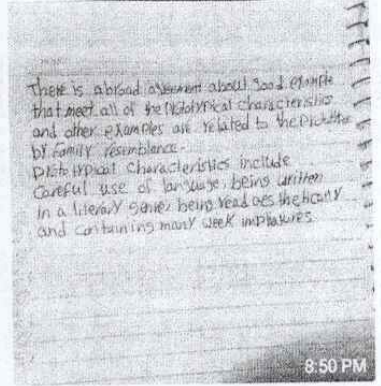 there is abroad agreement about good example
that meet all of the prototypical characteristics
and other examples are related to the prototype
by family resemblance.
prototypical characteristics include
Careful use of language, being written
in a literary genre, being read aesthetically
and containing many week implatures
8:50 PM